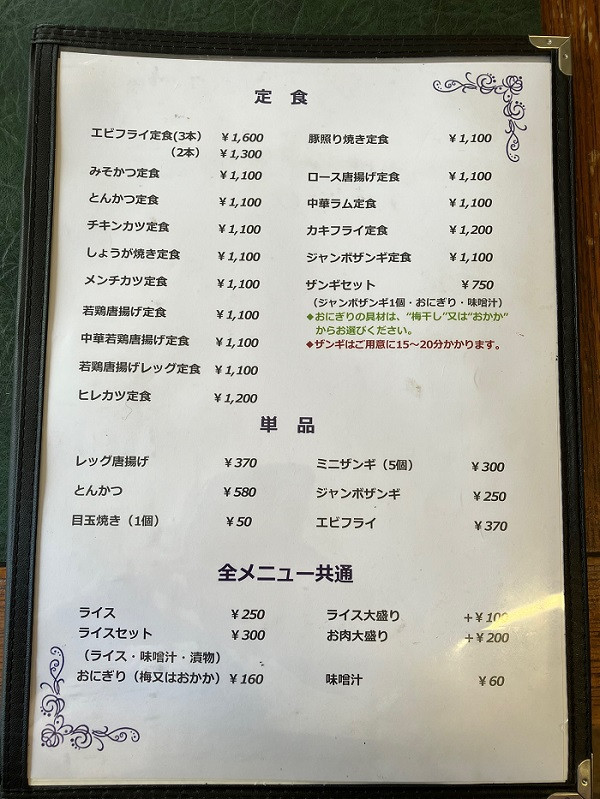 定 食
エビフライ定食(3本) ¥1,600
(2本) ¥1,300
みそかつ定食 ¥1,100
とんかつ定食 ¥1,100
チキンカツ定食 ¥1,100
しょうが焼き定食 ¥1,100
メンチカツ定食 ¥1,100
若鶏唐揚げ定食 ¥1,100
中華若鶏唐揚げ定食 ¥1,100
若鶏唐揚げレッグ定食 ¥1,100
ヒレカツ定食 ¥1,200
豚照り焼き定食 ¥1,100
ロース唐揚げ定食 ¥1,100
中華ラム定食 ¥1,100
カキフライ定食 ¥1,200
ジャンボザンギ定食 ¥1,100
ザンギセット ¥750
(ジャンボザンギ1個・おにぎり・味噌汁)
◆おにぎりの具材は、“梅干し”又は“おかか”
からお選びください。
◆ザンギはご用意に15～20分かかります。
単 品
レッグ唐揚げ ¥370
とんかつ ¥580
目玉焼き（1個） ¥50
ミニザンギ（5個） ¥300
ジャンボザンギ ¥250
エビフライ ¥370
全メニュー共通
ライス ¥250
ライスセット ¥300
（ライス・味噌汁・漬物）
おにぎり（梅又はおかか）¥160
ライス大盛り +¥100
お肉大盛り +¥200
味噌汁 ¥60